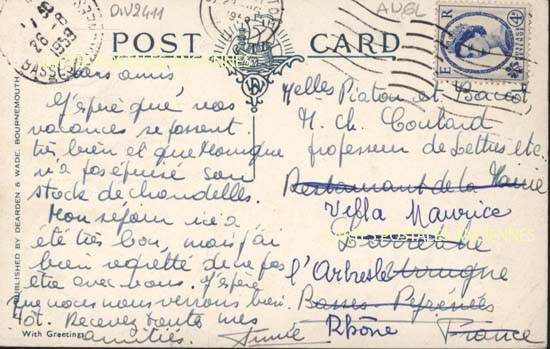 DIV2411
AUEL
26-8
1953
BASSES
POST CARD
E R
4D
PUBLISHED BY DEARDEN & WADE, BOURNEMOUTH
CARTES POSTALES ANCIENNES
Chers amis
J'espère que vos
vacances se passent
très bien et que Monique
n'a pas épuisé son
stock de chandelles.
Mon séjour ici a
été très bon, mais j'ai
bien regretté de ne pas
être avec vous. J'espère
que nous nous verrons bien-
tôt. Recevez toutes mes
amitiés. Annie
With Greetings
Melles Piaton et
M. Ch Coutard
professeur de Lettres etc.
Restaurant de la Mairie
Villa Maurice
l'Arbresle
Basses Pyrénées
Rhône
France